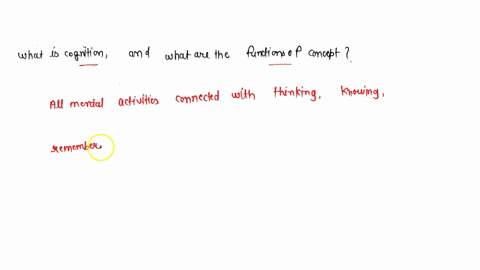 what is cognition, and what are the functions of concept?
All mental activities connected with thinking, knowing,
remember